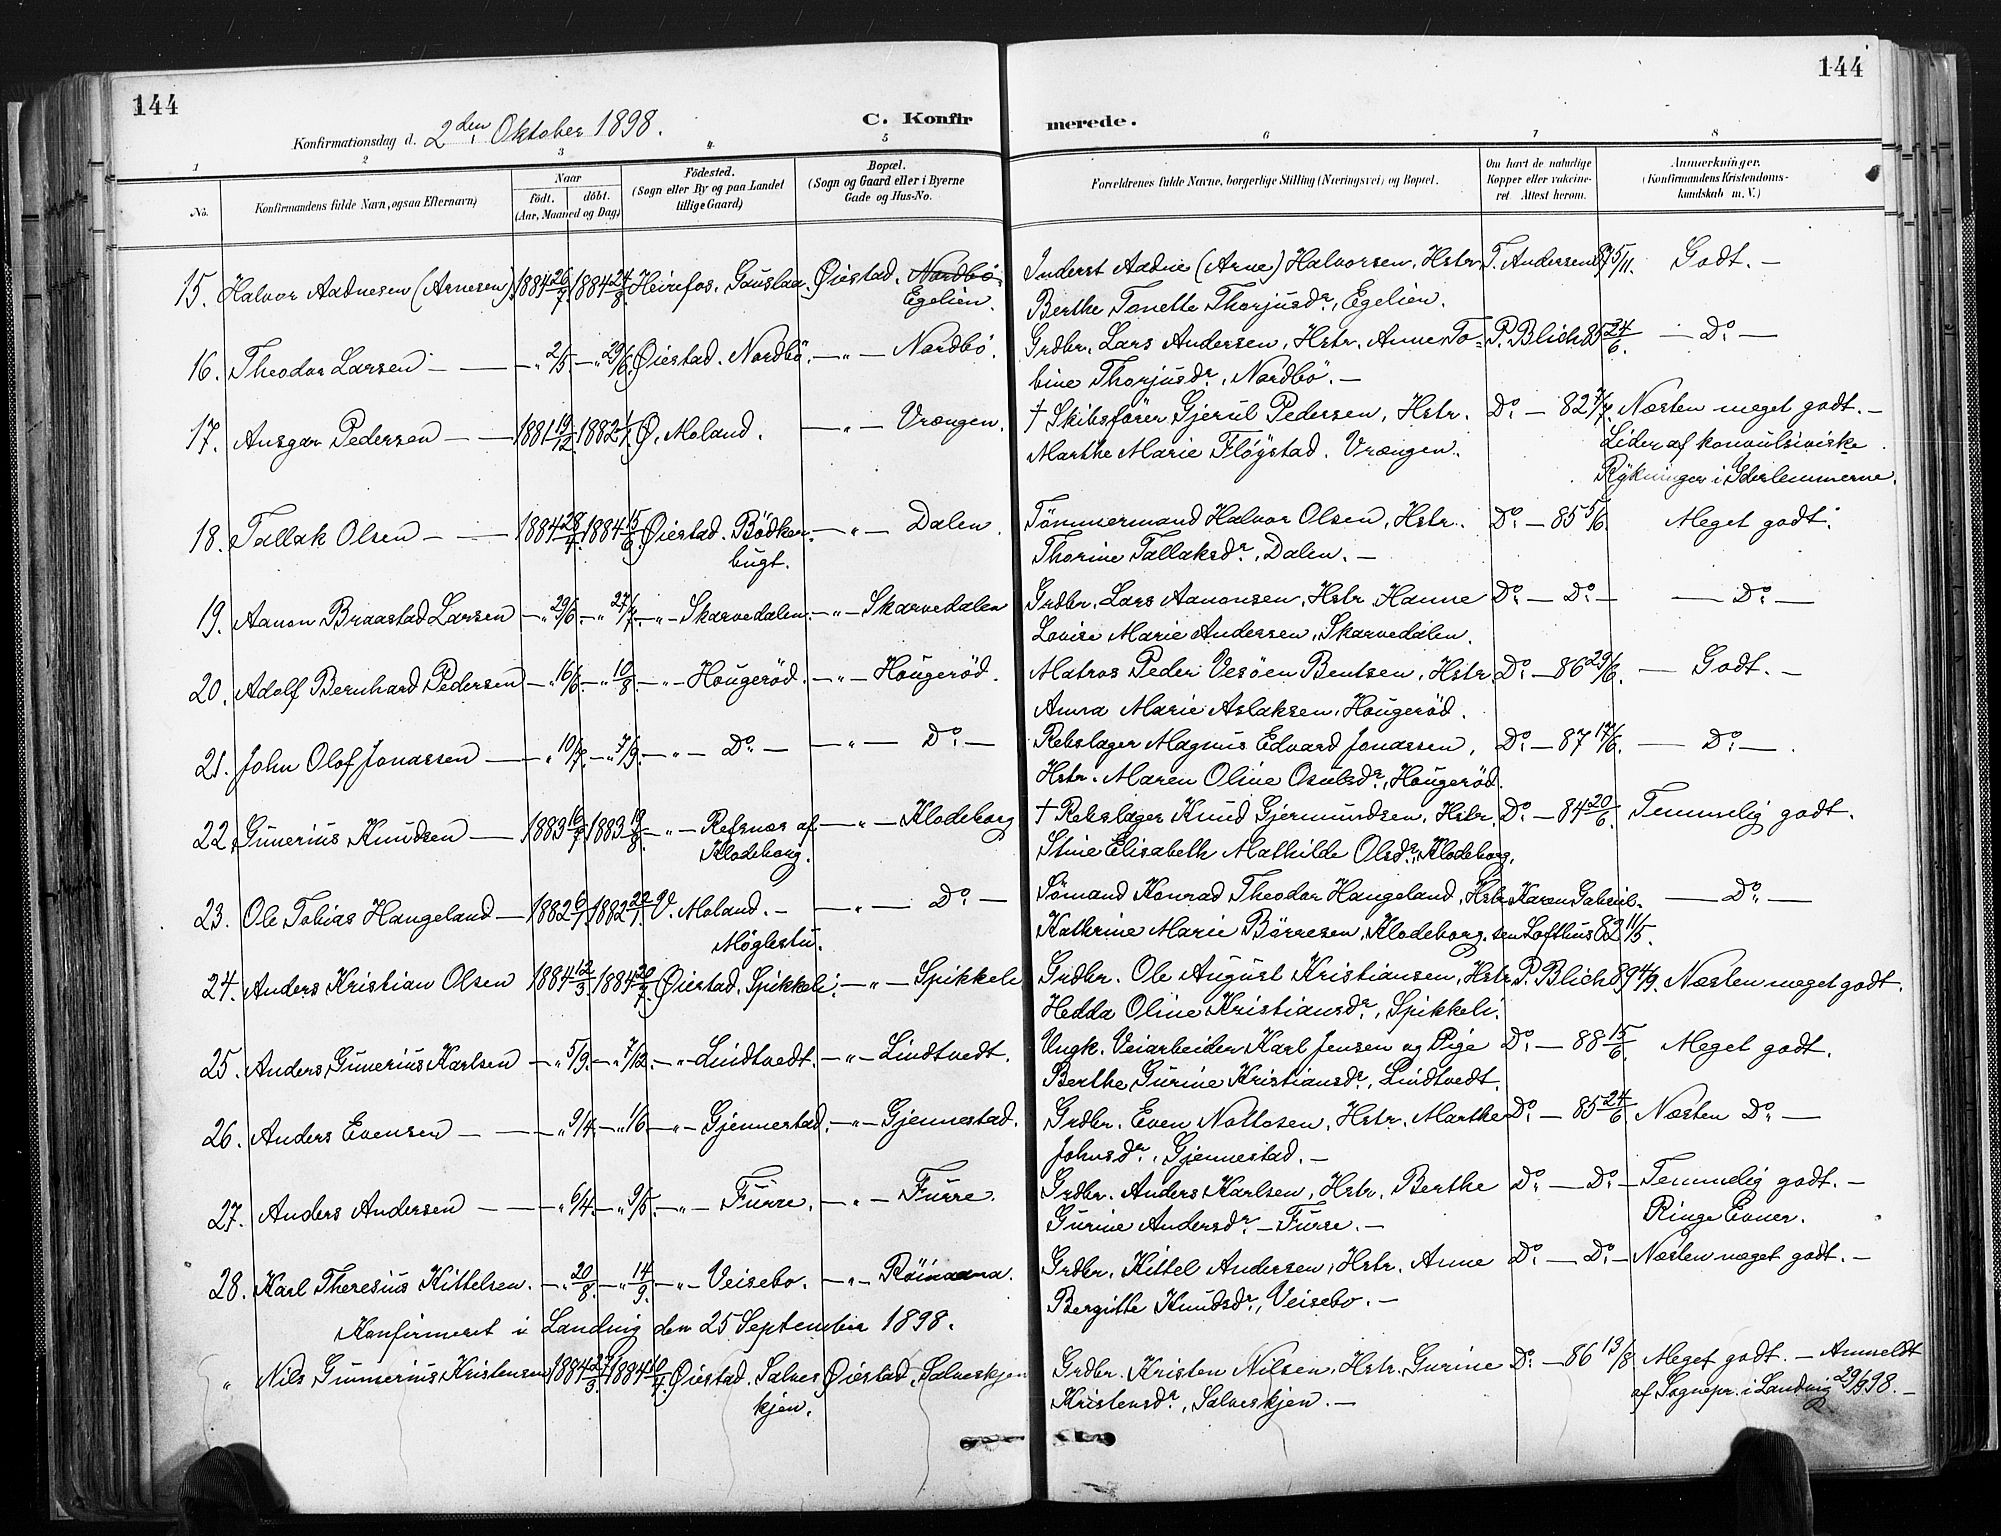 144
144
Konfirmationsdag d. 2den Oktober 1898.
C. Konfirmerede.
1 2 3 4 5 6 7 8
No.
Konfirmandens fulde Navn, ogsaa Efternavn)
Naar
født. døbt.
(Aar, Maaned og Dag)
Fødested.
(Sogn eller By og paa Landet
tillige Gaard)
Bopæl.
(Sogn og Gaard eller i Byerne
Gade og Hus-No.
Forældrenes fulde Navne, borgerlige Stilling (Næringsvei) og Bopæl.
Om havt de naturlige
Kopper eller vakcine-
ret Attest herom.
Anmærkninger.
(Konfirmandens Kristendoms-
kundskab m. V.)
15. Halvor Aadnesen (Arnesen) 1884 26/7. 1884 24/8. Heirefos. Gauslaa. Øiestad. Nordbö. Inderst Aadne (Arne) Halvorsen, Hstr. T. Andersen 87 5/11. Godt. —
Egelien. Berthe Tonette Thorjusdr., Egelien.
16. Theodor Larsen — — " 2/5 — " 29/6. Øiestad. Nordbö. — " — Nordbö. Grdbr. Lars Andersen, Hstr. Anne To- P. Blich 85 24/6. — Do —
bine Thorjusdr., Nordbö. —
17. Ansgar Pedersen — — 1881 19/12. 1882 1/1. Ø. Moland. — " — Vrængen. † Skibsförer Gjerul Pedersen, Hstr. Do — 82 7/7. Næsten meget godt. —
Marthe Marie Fløystad. Vrængen. Lider af konvulsiviske
Rykninger i Yderlemmerne.
18. Tallak Olsen — — 1884 28/4. 1884 15/6. Øiestad. Bödker- — " — Dalen. Tömmermand Halvor Olsen, Hstr. Do — 85 5/6. Meget godt.
bugt. Thorine Tallaksdr., Dalen. —
19. Aanon Braastad Larsen — " 29/6. — " 27/7. — " — Skarvedalen. — " — Skarvedalen Grdbr. Lars Aanonsen, Hstr. Hanne Do — Do — — Do —
Lovise Marie Andersen, Skarvedalen.
20. Adolf Bernhard Pedersen — " 16/6. — " 10/8. — " — Hougeröd. — " — Hougeröd. Matros Peder Vesöen Bentsen, Hstr. Do — 86 29/6. — Godt. —
Anna Marie Aslaksen, Hougeröd.
21. John Olof Jonassen — " 10/7. — " 7/9. — " — Do — — " — Do — Rebslager Magnus Edvard Jonassen, Do — 87 17/6. — Do —
Hstr. Maren Oline Osulsdr., Hougeröd.
22. Gunerius Knudsen — 1883 16/7. 1883 19/8. — " — Refsnes af — " — Klodeborg † Rebslager Knud Gjermundsen, Hstr. Do — 84 20/6. Temmelig godt.
Klodeborg. Stine Elisabeth Mathilde Olsdr., Klodeborg.
23. Ole Tobias Haugeland — 1882 6/1. 1882 22/1. V. Moland. — — " — Do — Sömand Konrad Theodor Haugeland, Hstr. Karen Gabriel- — Do —
Møglestu. Kathrine Marie Börresen, Klodeborg. sen Lofthus 82 11/5.
24. Anders Kristian Olsen 1884 12/3. 1884 20/7. Øiestad. Spikkeli. — " — Spikkeli Grdbr. Ole August Kristiansen, Hstr. P. Blich 89 4/9. Næsten meget godt.
Hedda Oline Kristiansdr., Spikkeli.
25. Anders Gunerius Karlsen — " 5/9. — " 7/12. — " — Lindtvedt. — " — Lindtvedt. Ungk. Veiarbeider Karl Jensen og Pige Do — 88 15/6. Meget godt.
Berthe Gurine Kristiansdr., Lindtvedt.
26. Anders Evensen — — " 9/4. — " 1/6 — " — Gjennestad. — " — Gjennestad. Grdbr. Even Nottosen, Hstr. Marthe Do — 85 24/6. Næsten Do —
Johnsdr., Gjennestad. —
27. Anders Andersen — — " 6/4. — " 9/5. — " — Furre. — " — Furre. Grdbr. Anders Karlsen, Hstr. Berthe Do — Do — Temmelig godt. —
Gurine Andersdr. — Furre. — Ringe Evner.
28. Karl Theresius Kittelsen. — " 20/8. — " 14/9. — " — Veisebo. — " — Grdbr. Kittel Andersen, Hstr. Anne Do — Do — Næsten meget godt. —
Bergitte Knudsdr., Veisebo. —
Konfirmeret i Landvig den 25 September 1898.
" Nils Gunnerius Kristensen 1884 27/3. 1884 Øiestad. Salves Øiestad. Salveskjen Grdbr. Kristen Nilsen, Hstr. Gurine Do — 86 13/8 Meget godt. — Anmeldt
kjen. Kristensdr., Salveskjen. — af Sognepr. i Landvig 29/9 98. —